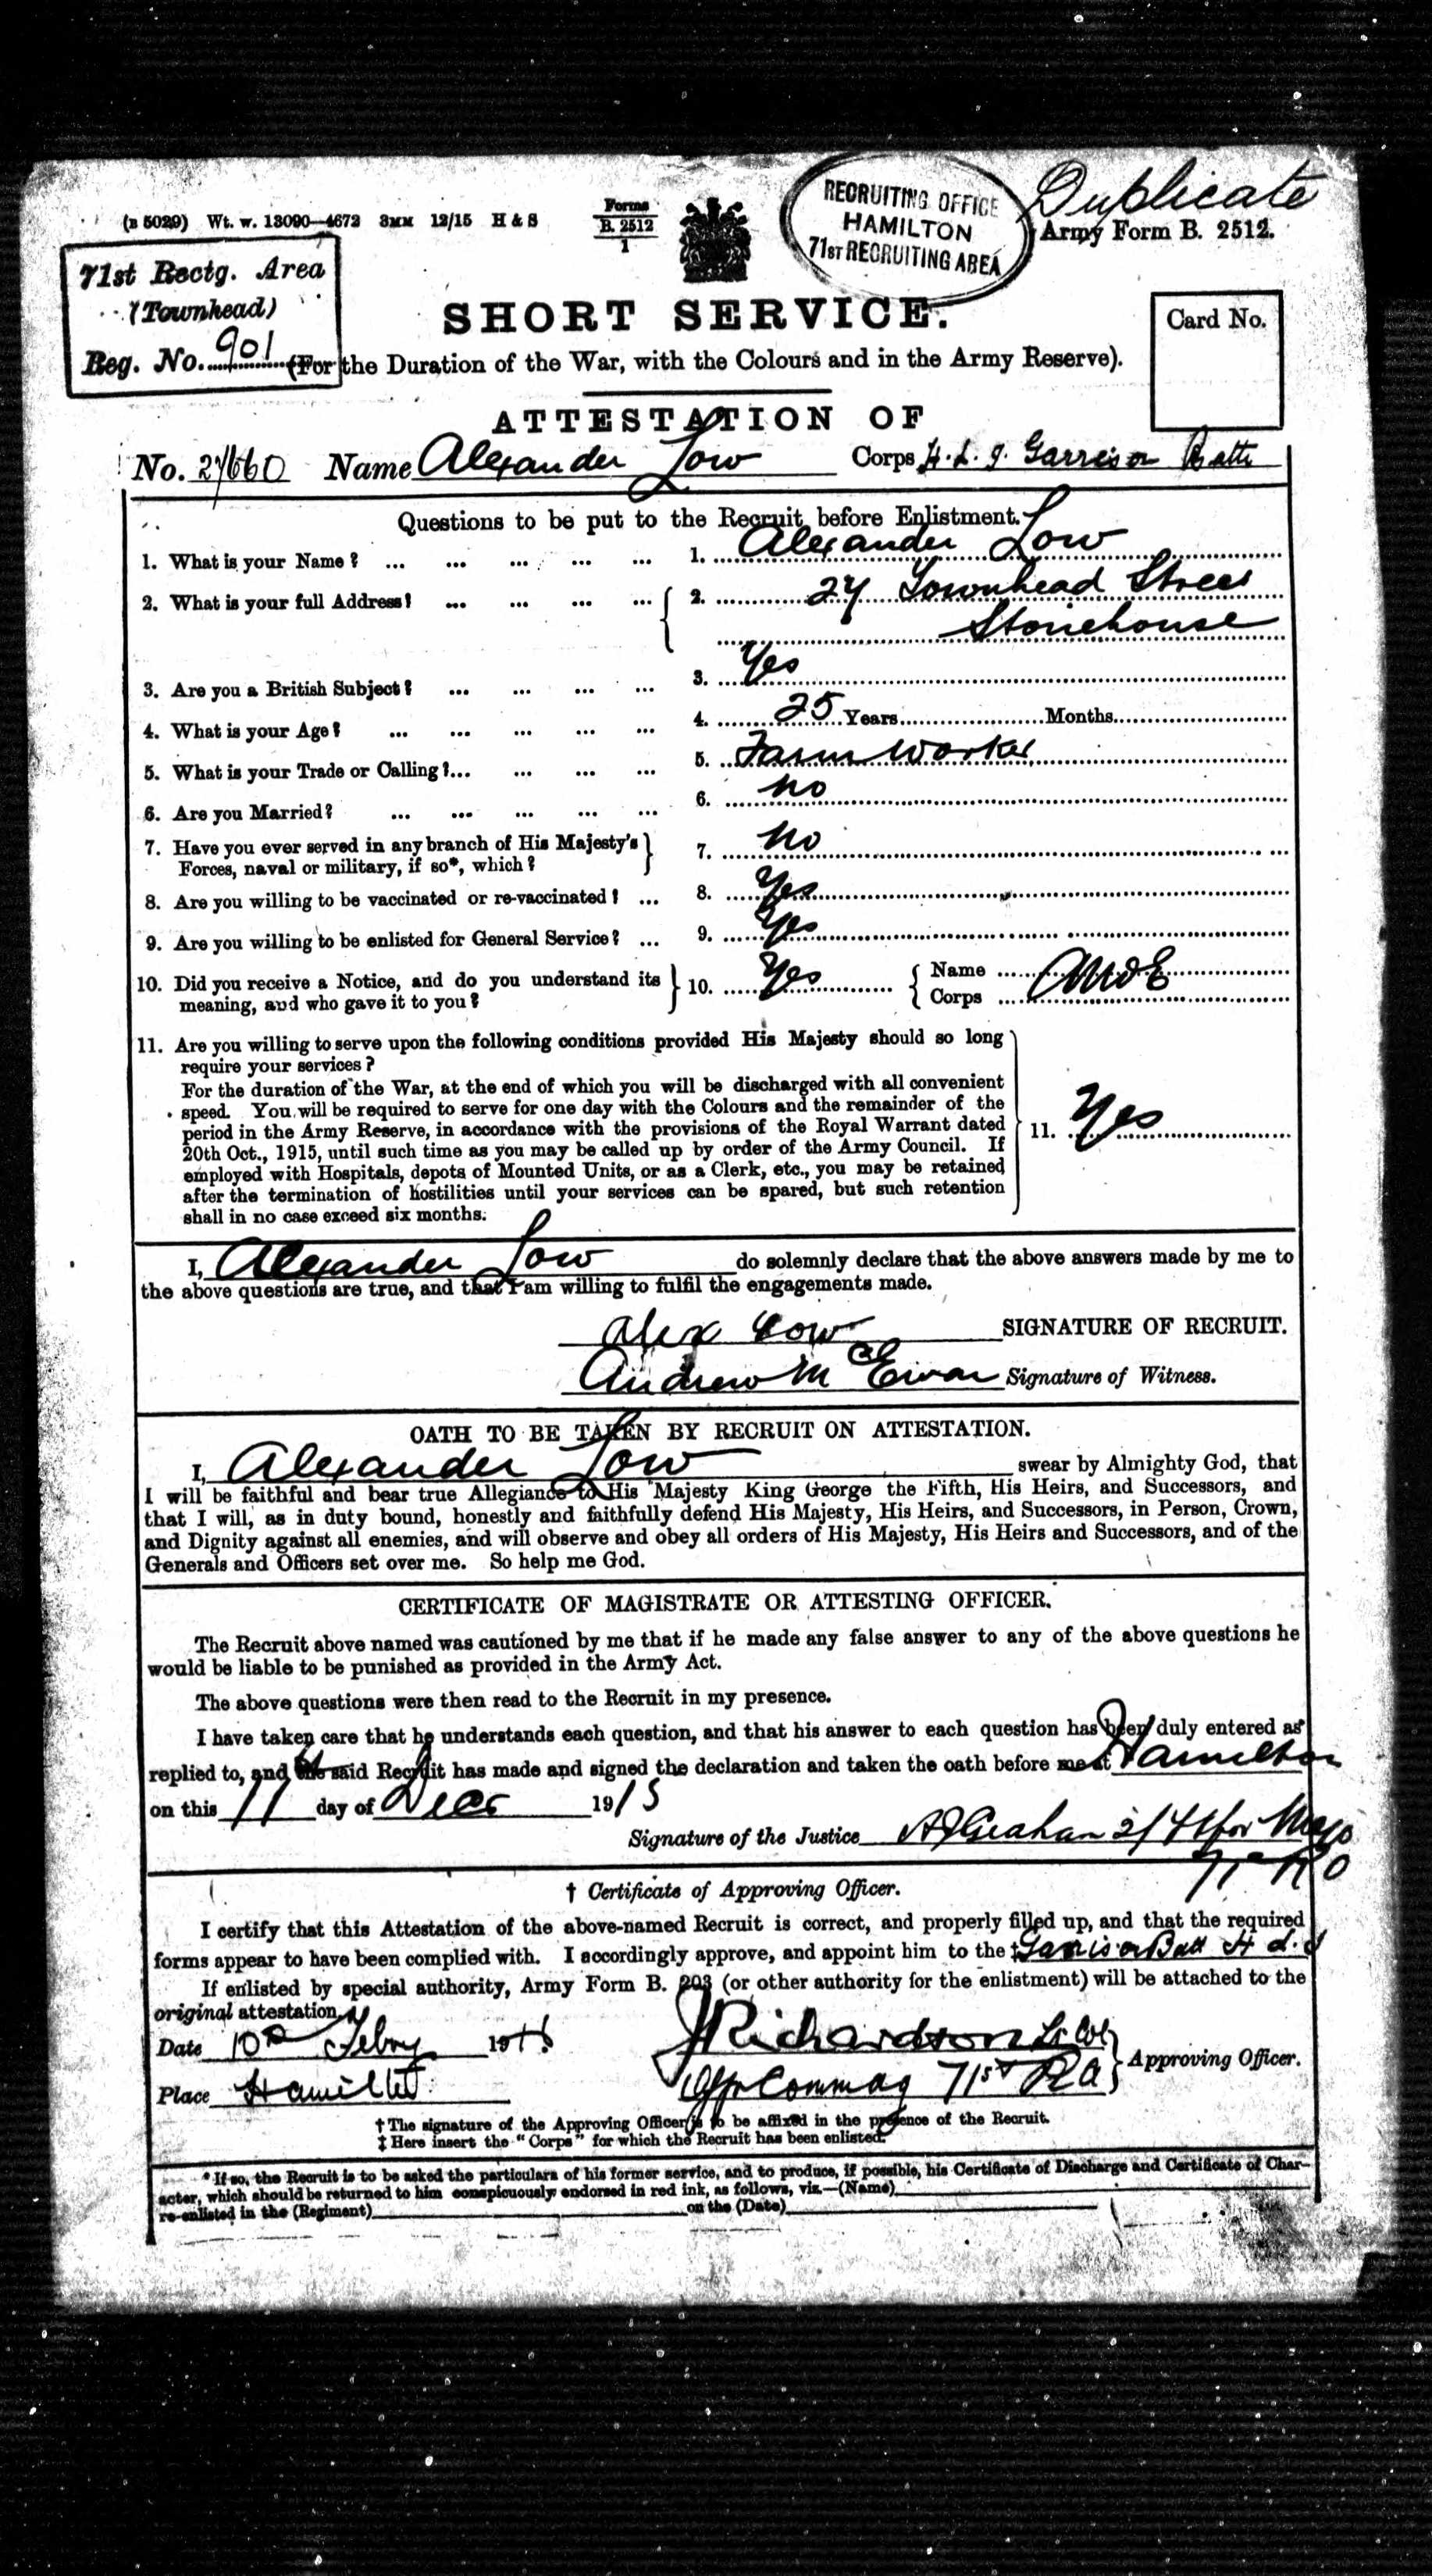 (B 5029) Wt. w. 13090—4672 3MM 12/15 H & S
Forms
B. 2512
1
RECRUITING OFFICE
HAMILTON
71ST RECRUITING AREA
Duplicate
Army Form B. 2512.
71st Rectg. Area
(Townhead)
Reg. No. 901
SHORT SERVICE.
(For the Duration of the War, with the Colours and in the Army Reserve).
Card No.
ATTESTATION OF
No. Name Alexander Low Corps H. L. I. Garrison Battn
Questions to be put to the Recruit before Enlistment.
1. What is your Name? ... ... ... ... ... 1. Alexander Low
2. What is your full Address? ... ... ... ... 2. 27 Townhead Street
Stonehouse
3. Are you a British Subject? ... ... ... ... 3. Yes
4. What is your Age? ... ... ... ... ... 4. 25 Years Months
5. What is your Trade or Calling?... ... ... ... 5. Farm Worker
6. Are you Married? ... ... ... ... ... 6. No
7. Have you ever served in any branch of His Majesty's
Forces, naval or military, if so*, which? 7. No
8. Are you willing to be vaccinated or re-vaccinated? ... 8. Yes
9. Are you willing to be enlisted for General Service? ... 9. Yes
10. Did you receive a Notice, and do you understand its
meaning, and who gave it to you? 10. Yes Name
Corps
11. Are you willing to serve upon the following conditions provided His Majesty should so long
require your services?
For the duration of the War, at the end of which you will be discharged with all convenient
speed. You will be required to serve for one day with the Colours and the remainder of the
period in the Army Reserve, in accordance with the provisions of the Royal Warrant dated
20th Oct., 1915, until such time as you may be called up by order of the Army Council. If
employed with Hospitals, depots of Mounted Units, or as a Clerk, etc., you may be retained
after the termination of hostilities until your services can be spared, but such retention
shall in no case exceed six months.
11. Yes
I, Alexander Low do solemnly declare that the above answers made by me to
the above questions are true, and that I am willing to fulfil the engagements made.
Alex Low SIGNATURE OF RECRUIT.
Andrew McEwan Signature of Witness.
OATH TO BE TAKEN BY RECRUIT ON ATTESTATION.
I, Alexander Low swear by Almighty God, that
I will be faithful and bear true Allegiance to His Majesty King George the Fifth, His Heirs, and Successors, and
that I will, as in duty bound, honestly and faithfully defend His Majesty, His Heirs, and Successors, in Person, Crown,
and Dignity against all enemies, and will observe and obey all orders of His Majesty, His Heirs and Successors, and of the
Generals and Officers set over me. So help me God.
CERTIFICATE OF MAGISTRATE OR ATTESTING OFFICER.
The Recruit above named was cautioned by me that if he made any false answer to any of the above questions he
would be liable to be punished as provided in the Army Act.
The above questions were then read to the Recruit in my presence.
I have taken care that he understands each question, and that his answer to each question has been duly entered as
replied to, and the said Recruit has made and signed the declaration and taken the oath before me at Hamilton
on this 11 day of Decr 1915
Signature of the Justice
† Certificate of Approving Officer.
I certify that this Attestation of the above-named Recruit is correct, and properly filled up, and that the required
forms appear to have been complied with. I accordingly approve, and appoint him to the ‡ Garrison Batt H. L. I
If enlisted by special authority, Army Form B. 203 (or other authority for the enlistment) will be attached to the
original attestation.
Date 10th Febry 1916
J Richardson Lt Col
Approving Officer.
Place Hamilton 71st RA
† The signature of the Approving Officer is to be affixed in the presence of the Recruit.
‡ Here insert the "Corps" for which the Recruit has been enlisted.
* If so, the Recruit is to be asked the particulars of his former service, and to produce, if possible, his Certificate of Discharge and Certificate of Char-
acter, which should be returned to him conspicuously endorsed in red ink, as follows, viz.—(Name)
re-enlisted in the (Regiment) on the (Date)